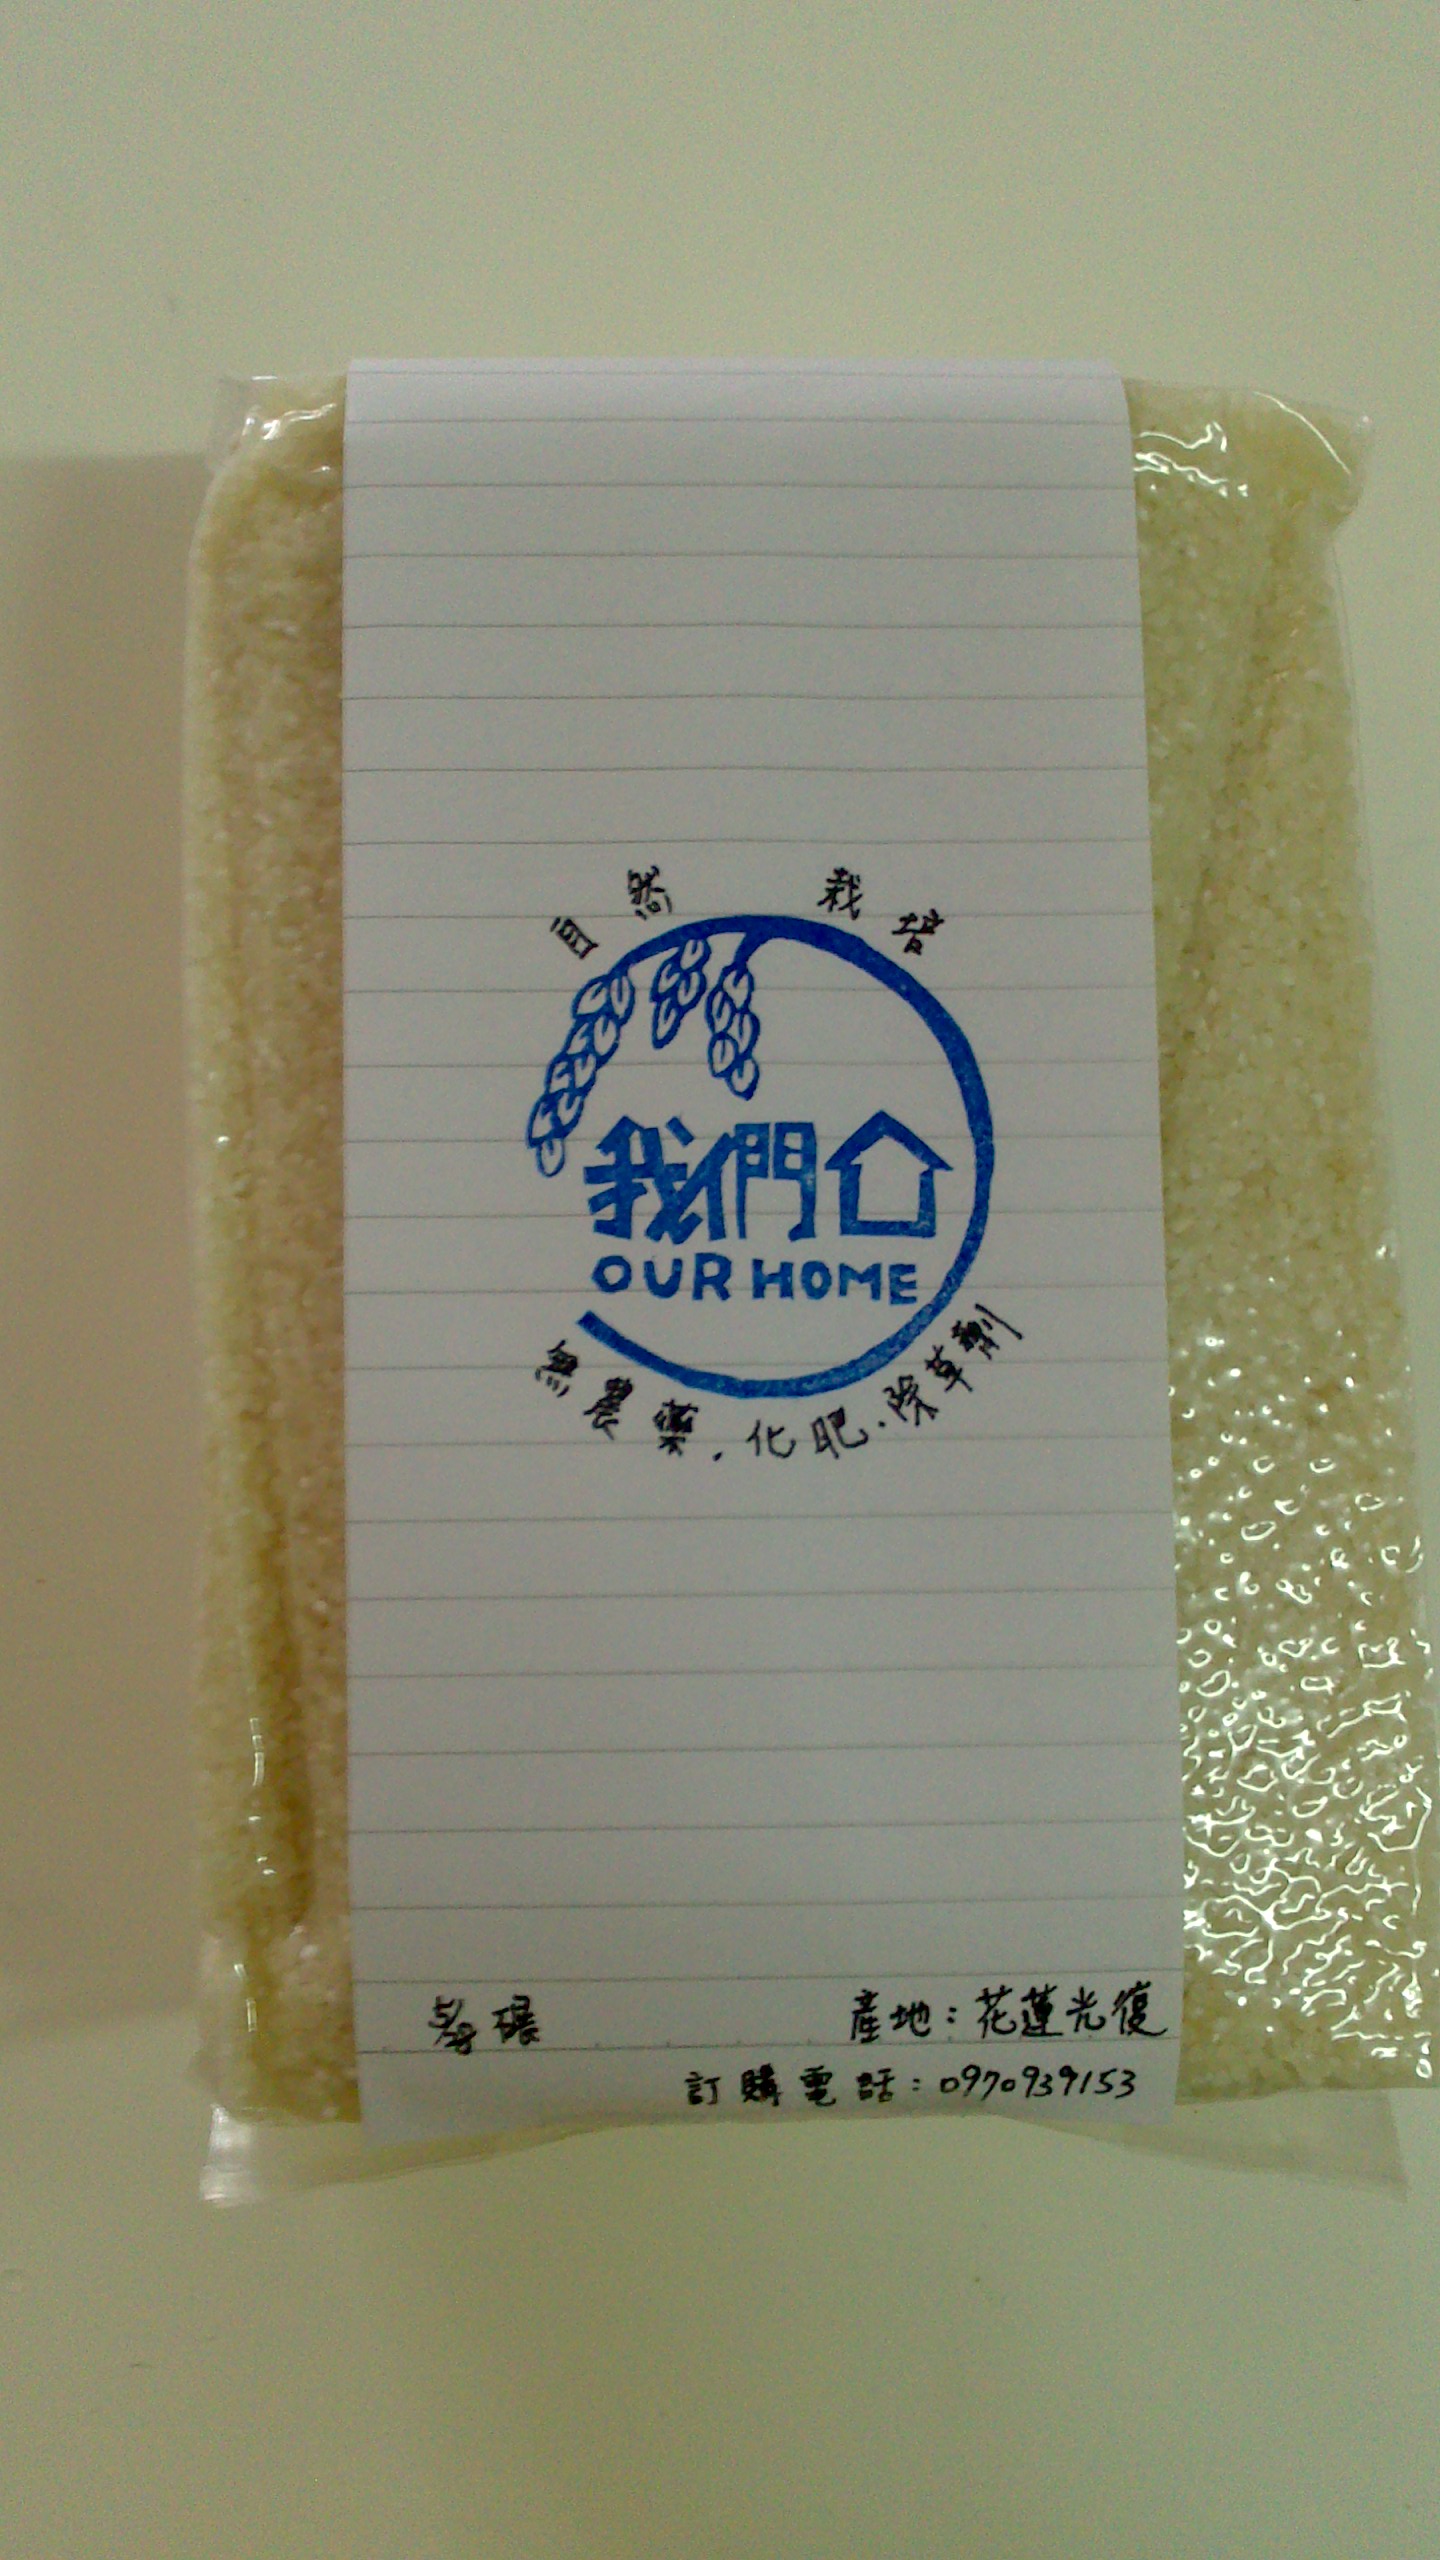 自然 栽培
我們
OUR HOME
無農藥.化肥.除草劑
產地:花蓮光復
訂購電話:0970939153